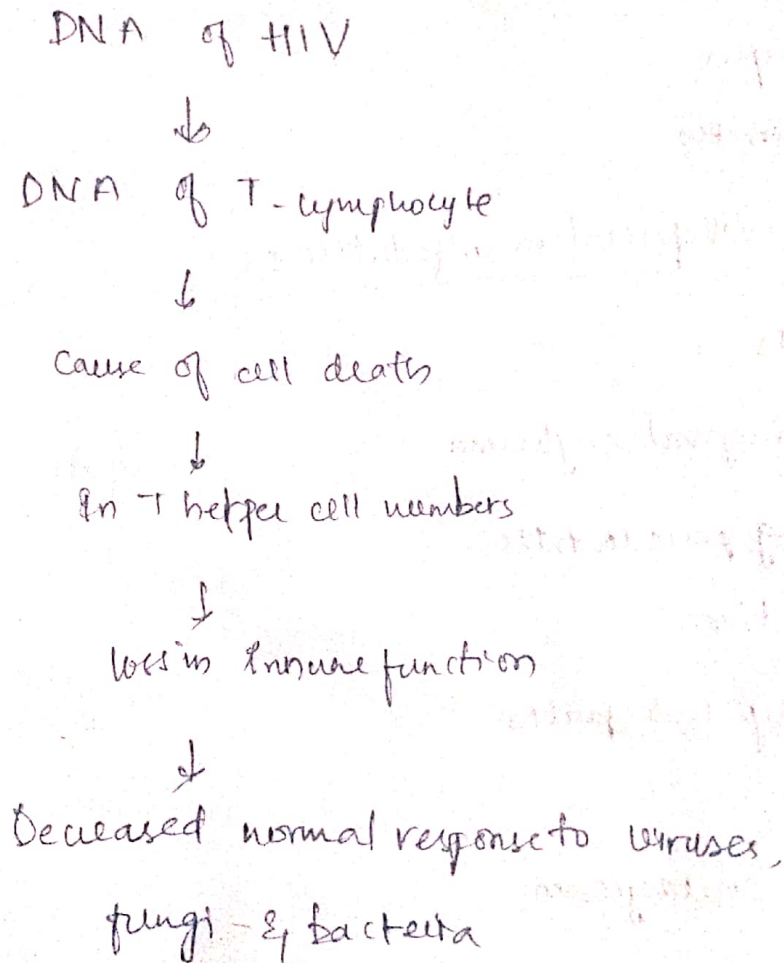 DNA of HIV
↓
DNA of T-lymphocyte
↓
Cause of cell death
↓
In T helper cell numbers
↓
loss in Immune function
↓
Decreased normal response to viruses,
fungi & bacteria